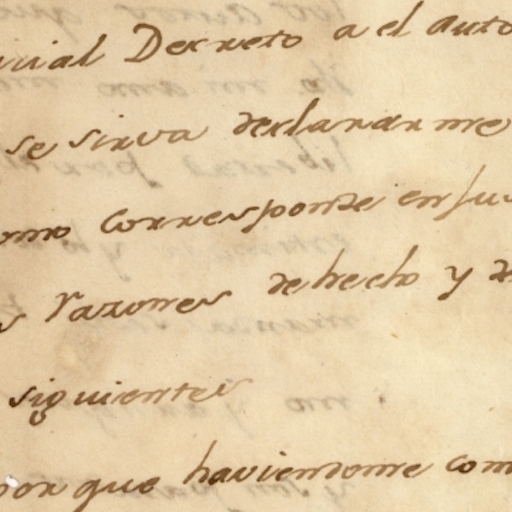 icial Decreto a el auto
se sirva declararme
omo corresponde en jus
s razones de hecho y de
siguientes
porque haviendome com